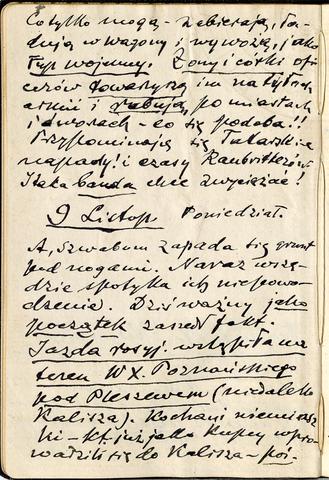 Co tylko mogą - zabierają, ła-
dują w wagony i wywożą, jako
łup wojenny. Żony i córki ofi-
cerów towarzyszą im na tyłach
armii i rabują, po miastach
i dworach - co się podoba!!
Przypominają się Tatarskie
napady! i czasy Raubritterów
I taka banda chce zwyciężać!
9 Listop Poniedział.
A, Szwabom zapada się grunt
pod nogami. Naraz wszę-
dzie spotyka ich niepowo-
dzenie. Dziś ważny jako
początek zaszedł fakt.
Jazda rosyj. wstąpiła na
teren W X. Poznańskiego
pod Pleszewem (niedaleko
Kalisza). Kochani niemiasz
ki - kt. już jako kupcy wpro-
wadzili się do Kalisza - poj-